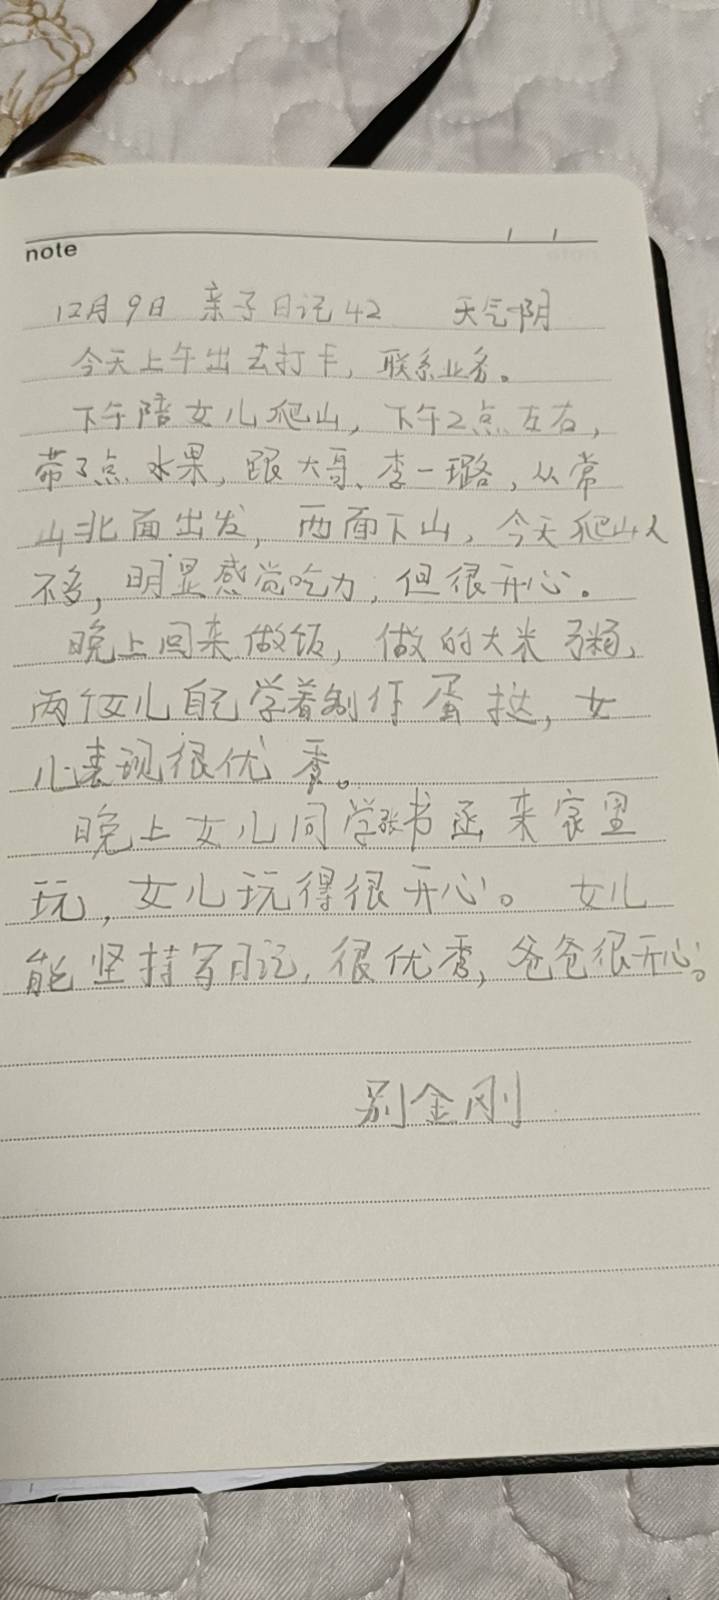 note
12月9日 亲子日记42 天气阴
今天上午出去打卡，联系业务。
下午陪女儿爬山，下午2点左右，
带了点水果，跟大哥、李一璐，从常
山北面出发，西面下山，今天爬山人
不多，明显感觉吃力，但很开心。
晚上回来做饭，做的大米粥，
两个女儿自己学着制作蛋挞，女
儿表现很优秀。
晚上女儿同学张书函来家里
玩，女儿玩得很开心。女儿
能坚持写日记，很优秀，爸爸很开心。
别金刚